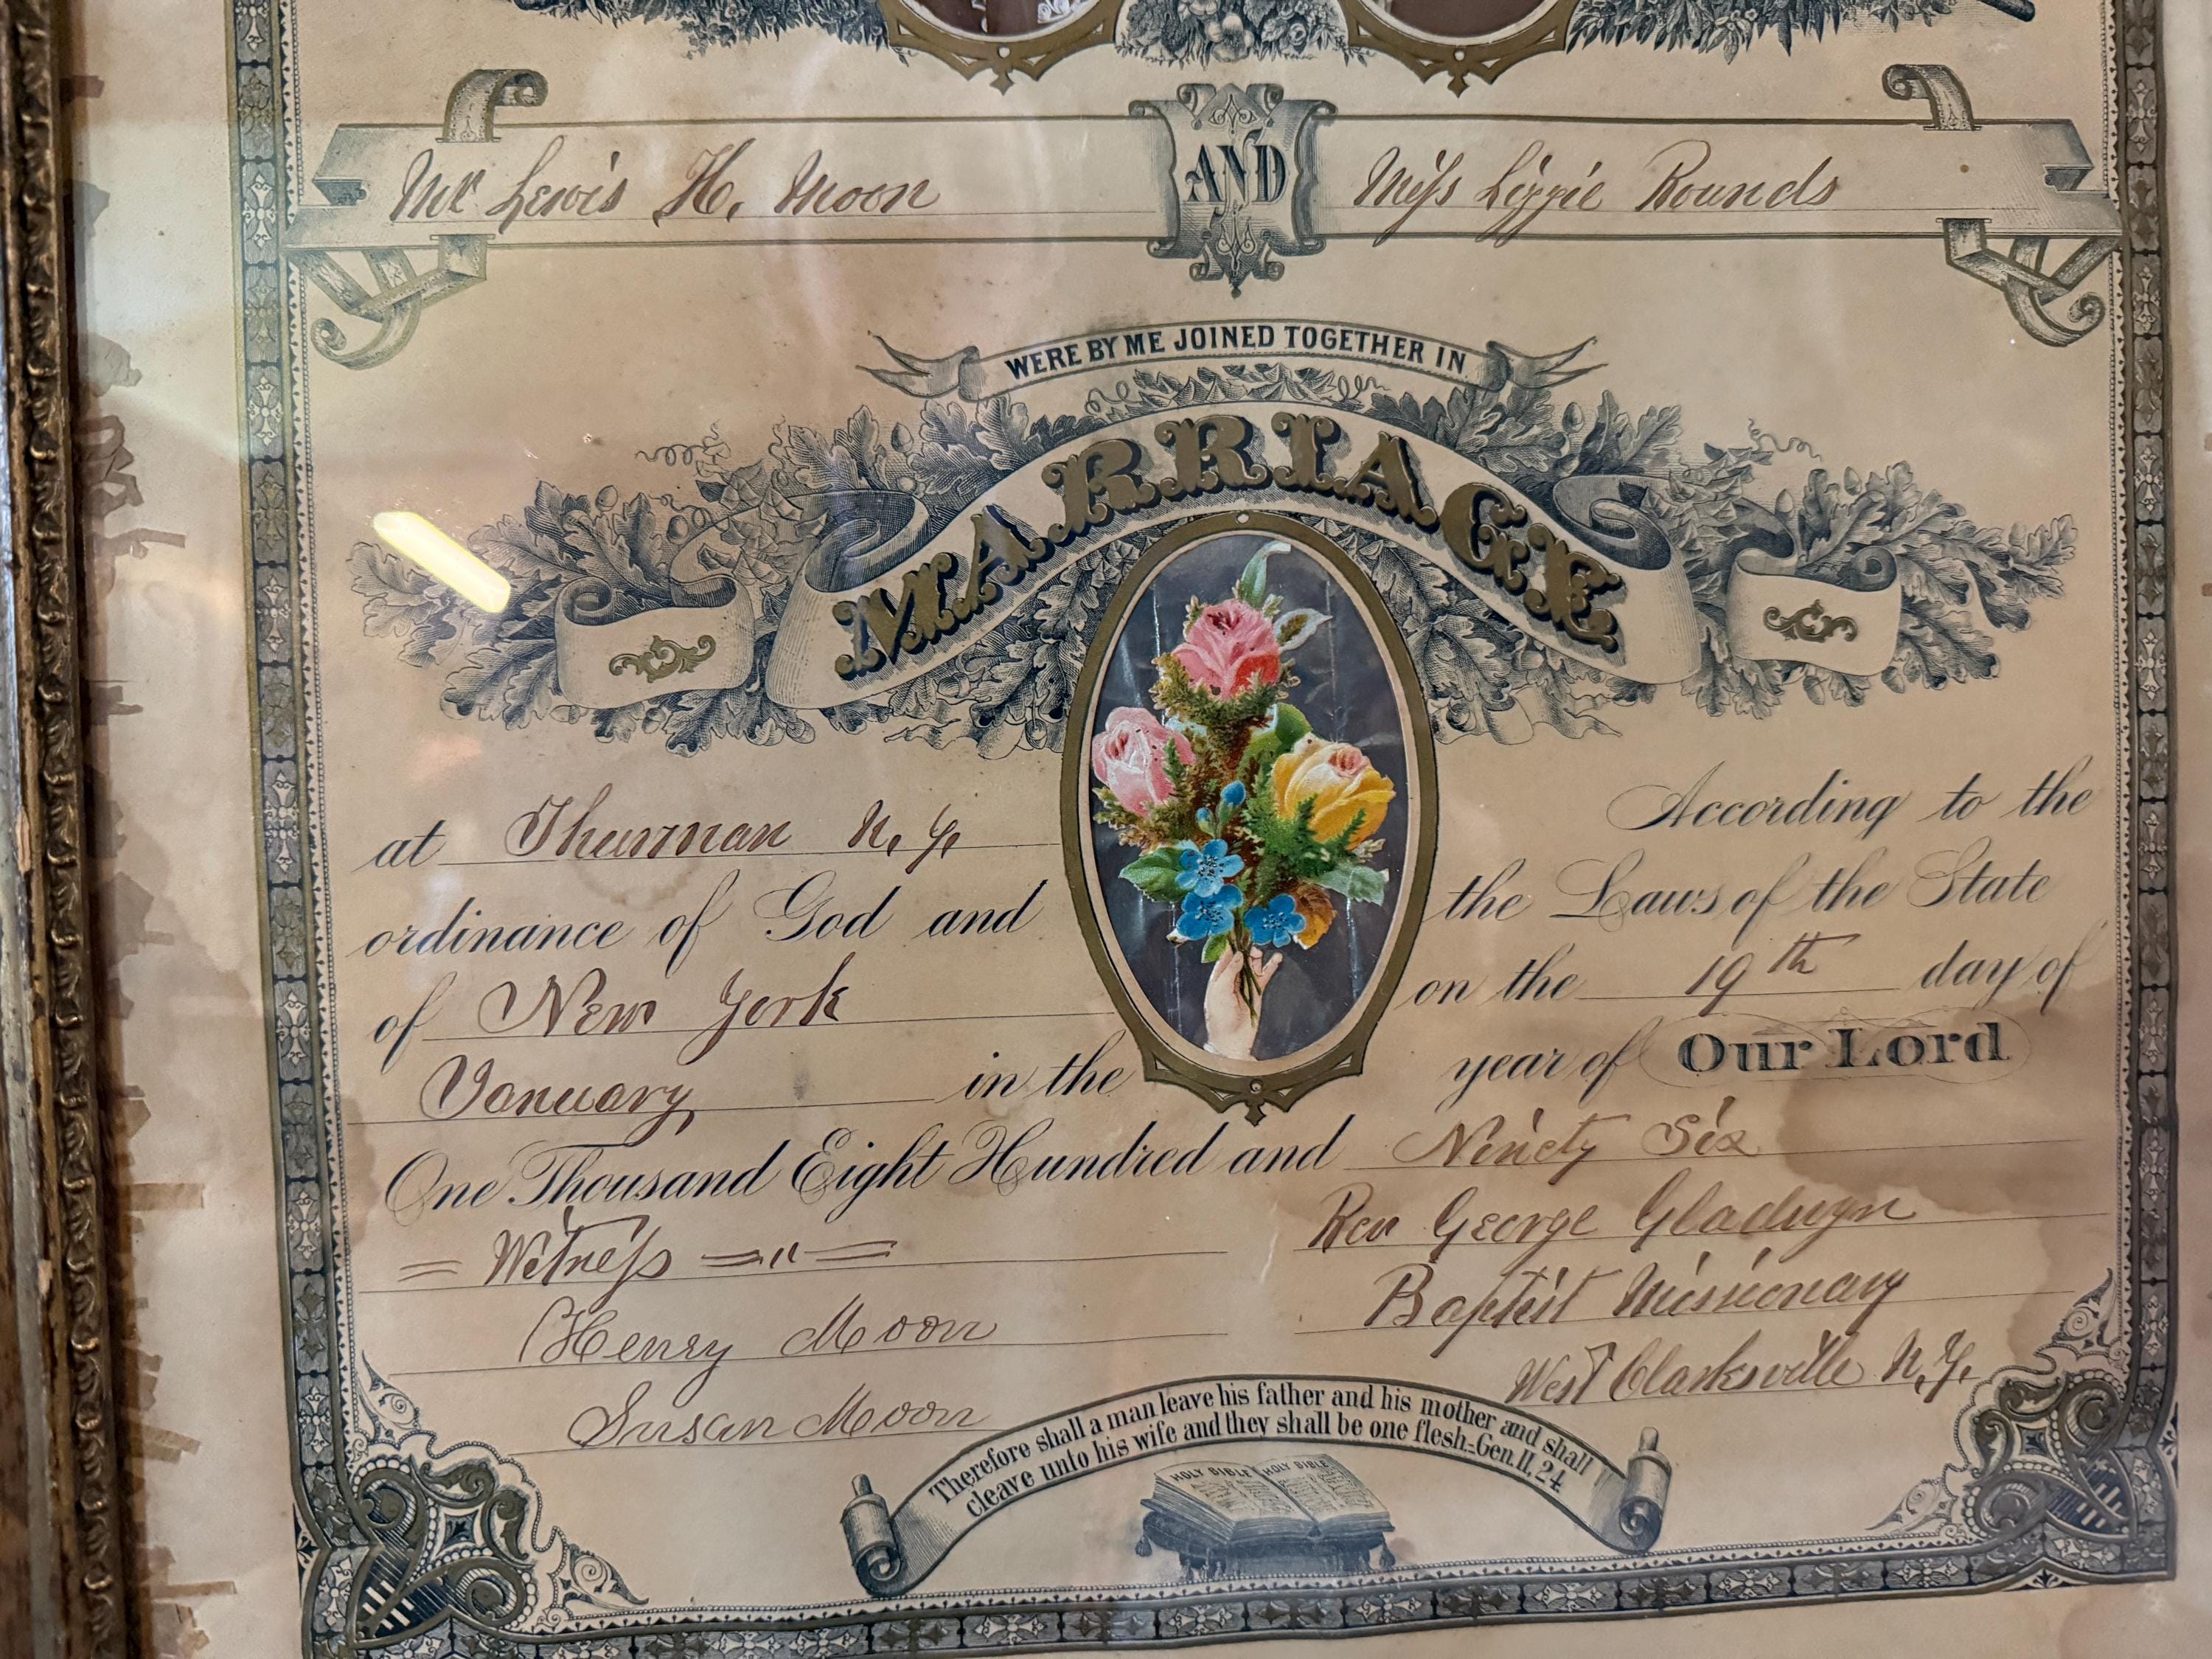 Mr Lewis H. Moon AND Miss Lizzie Rounds
WERE BY ME JOINED TOGETHER IN
MARRIAGE
at Thurman N.Y. According to the
ordinance of God and the Laws of the State
of New York on the 19th day of
January in the year of Our Lord
One Thousand Eight Hundred and Ninety Six
= Witness = " = Rev George Gladwyn
Henry Moon Baptist Missionary
Susan Moon West Clarksville N.Y.
Therefore shall a man leave his father and his mother and shall
cleave unto his wife and they shall be one flesh.-Gen. II, 24
HOLY BIBLE HOLY BIBLE